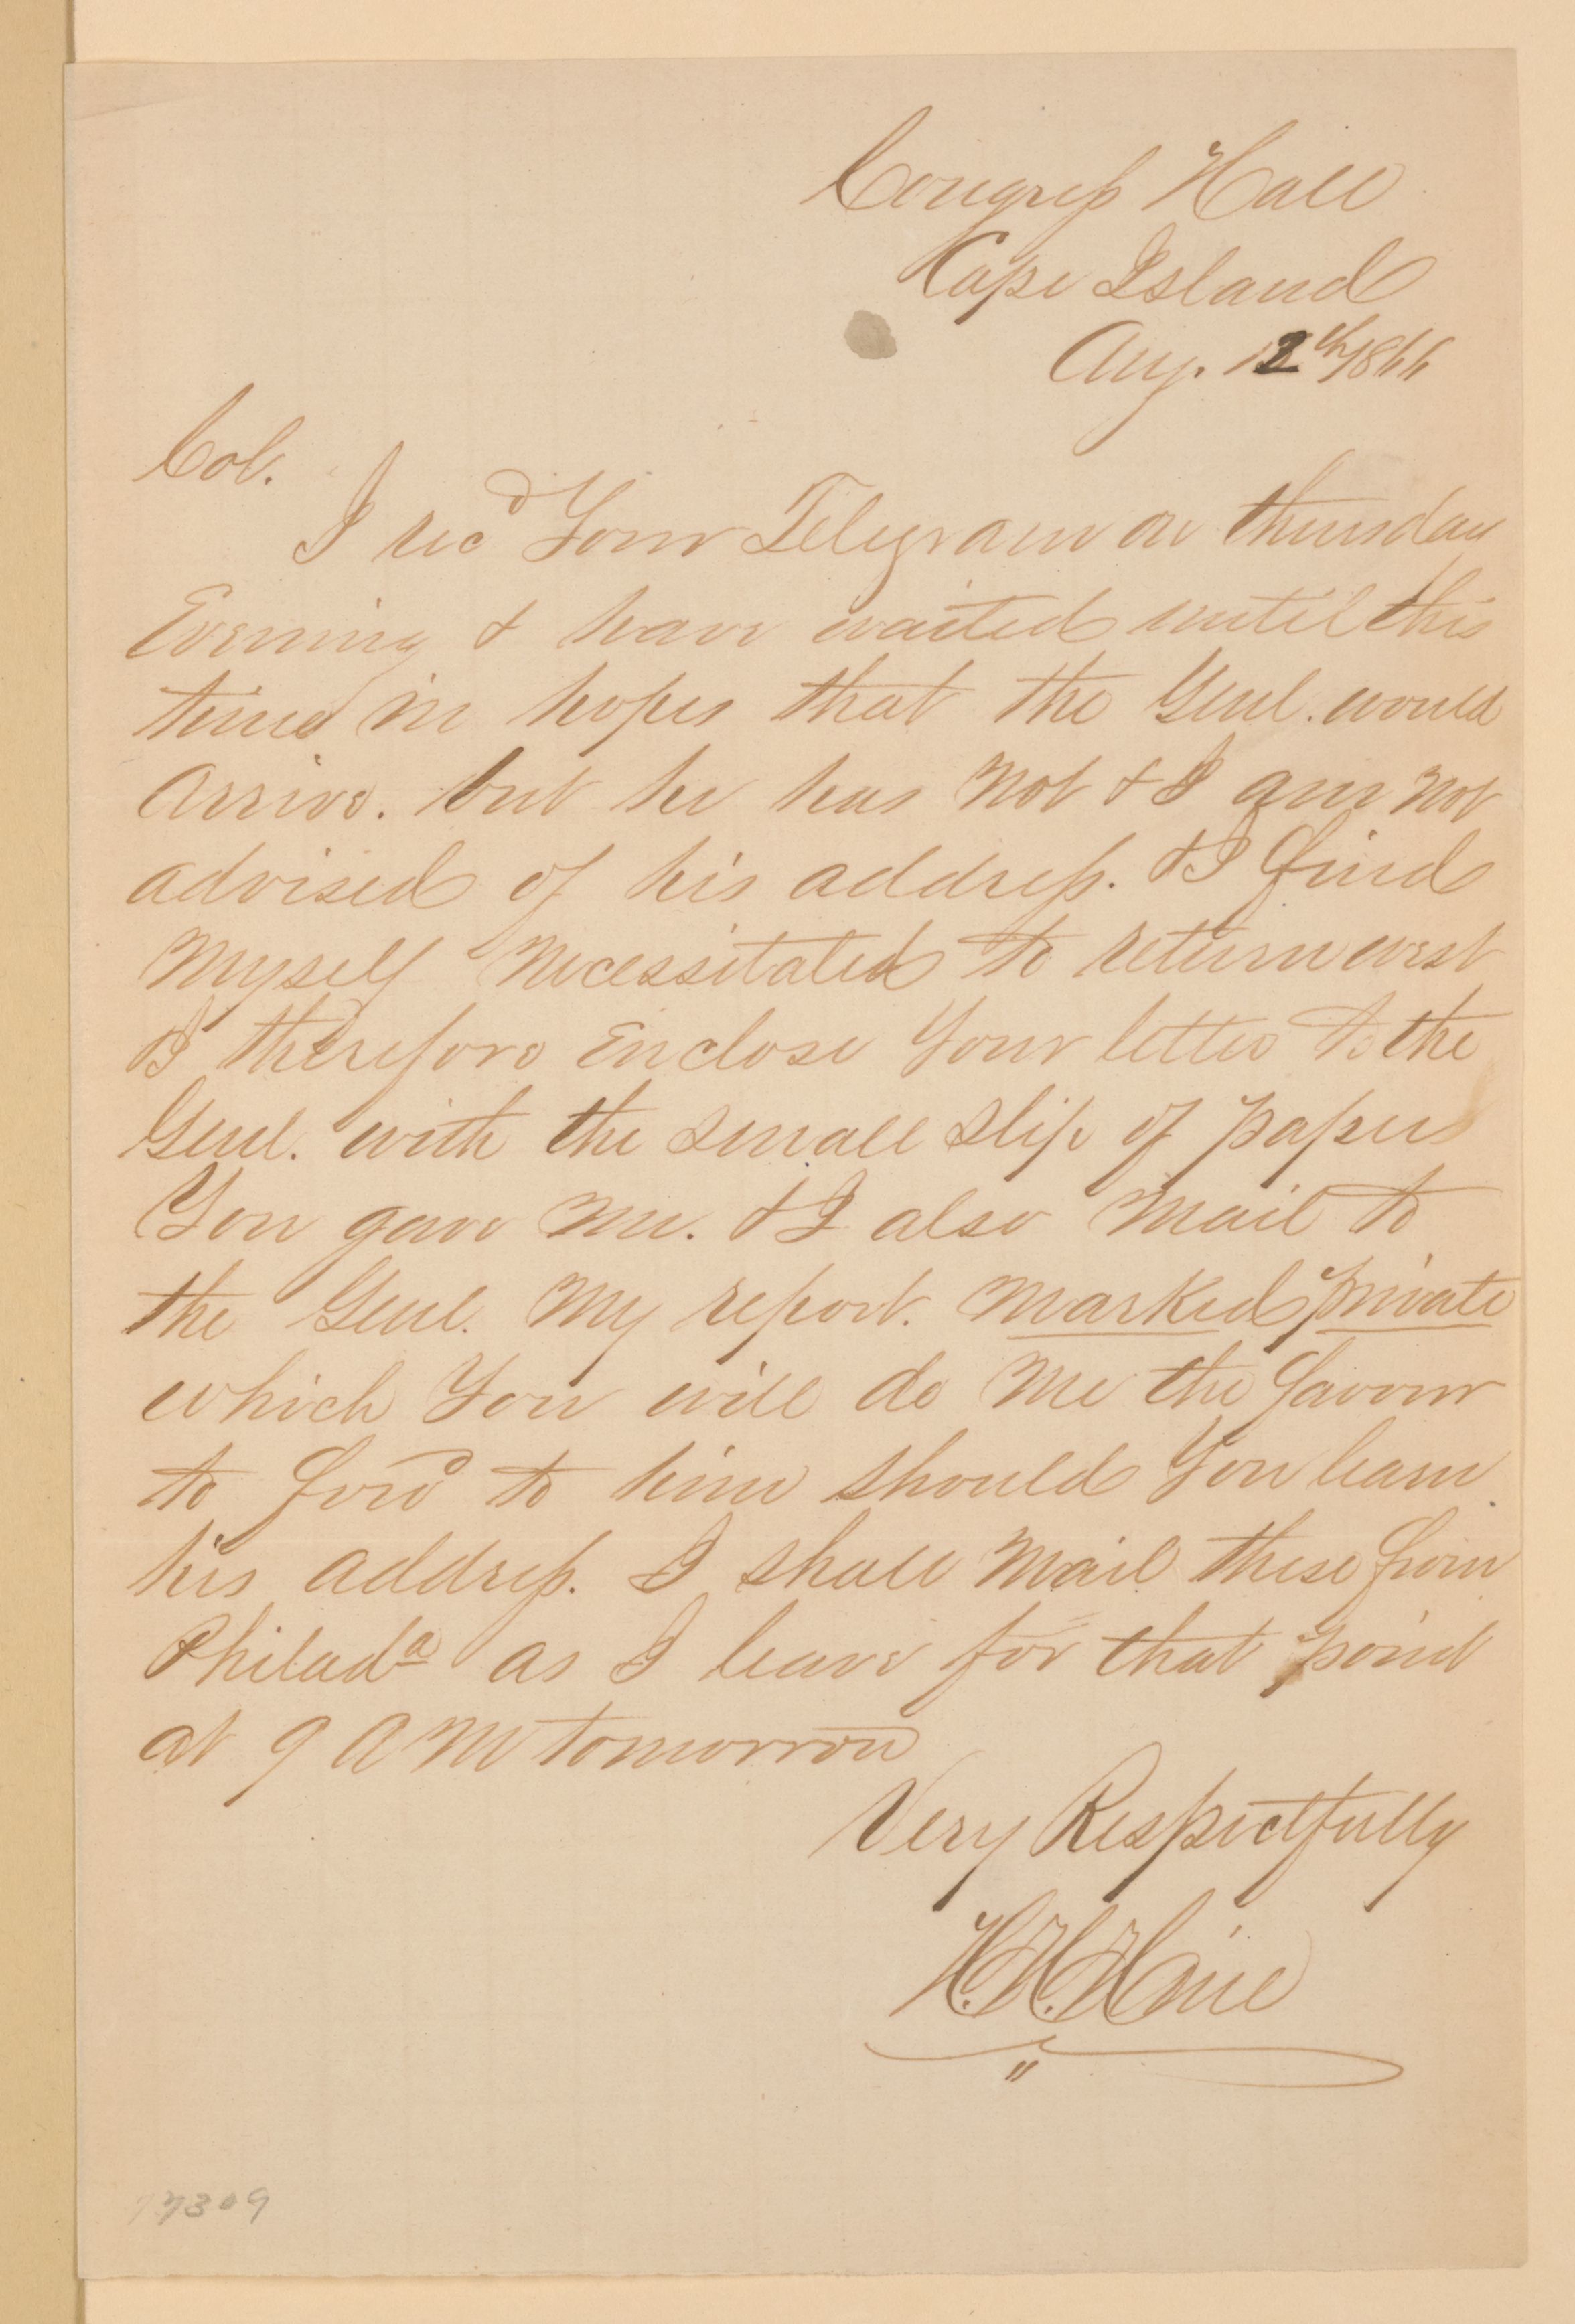 Congress Hall
Cape Island
Aug. 12th/1866
Col.
I recd Your Telegram on thursday
Evening & have waited until this
time in hopes that the Genl. would
Arrive. but he has Not & I am Not
advised of his address. & I find
Myself Necessitated to return west
& I therefore Enclose Your letter to the
Genl. with the small slip of paper
You gave Me. & I also Mail to
the Genl. My report. Marked private
which You will do Me the favour
to forwd to him should You learn
his address. I shall Mail these from
Philada as I leave for that point
at 9 AM tomorrow
Very Respectfully
H. H. Hine
77309